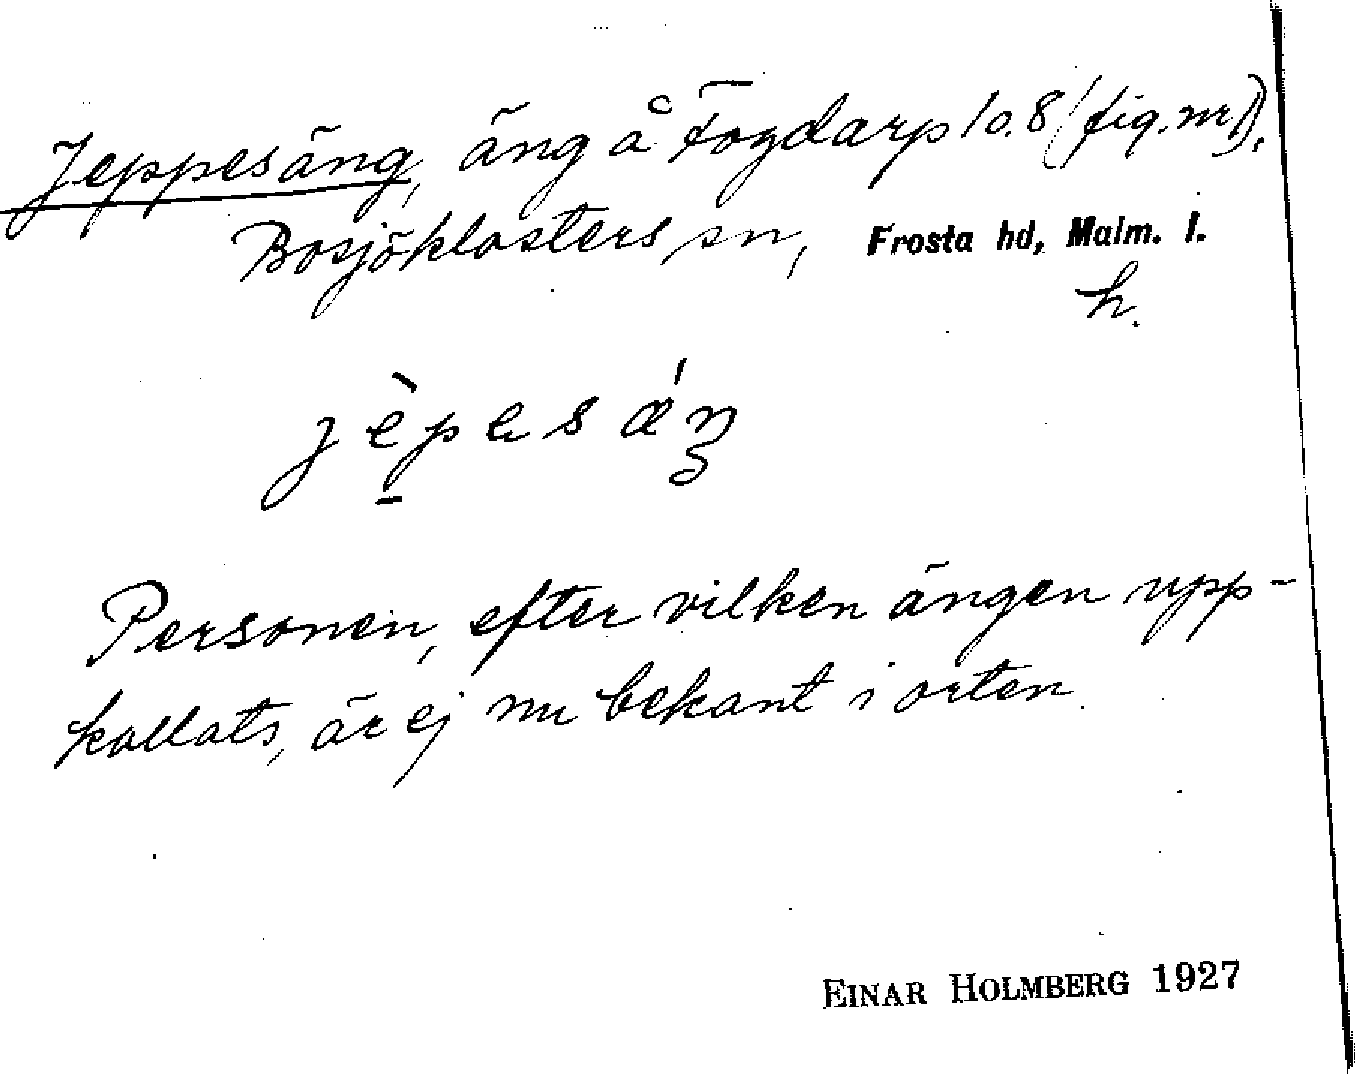 Jeppesäng, äng å Fogdarp 10.8 (fig. nr 1).
Bosjöklosters sn, Frosta hd, Malm. l.
h.
jèpesáŋ
Personen, efter vilken ängen upp-
kallats, är ej nu bekant i orten.
EINAR HOLMBERG 1927